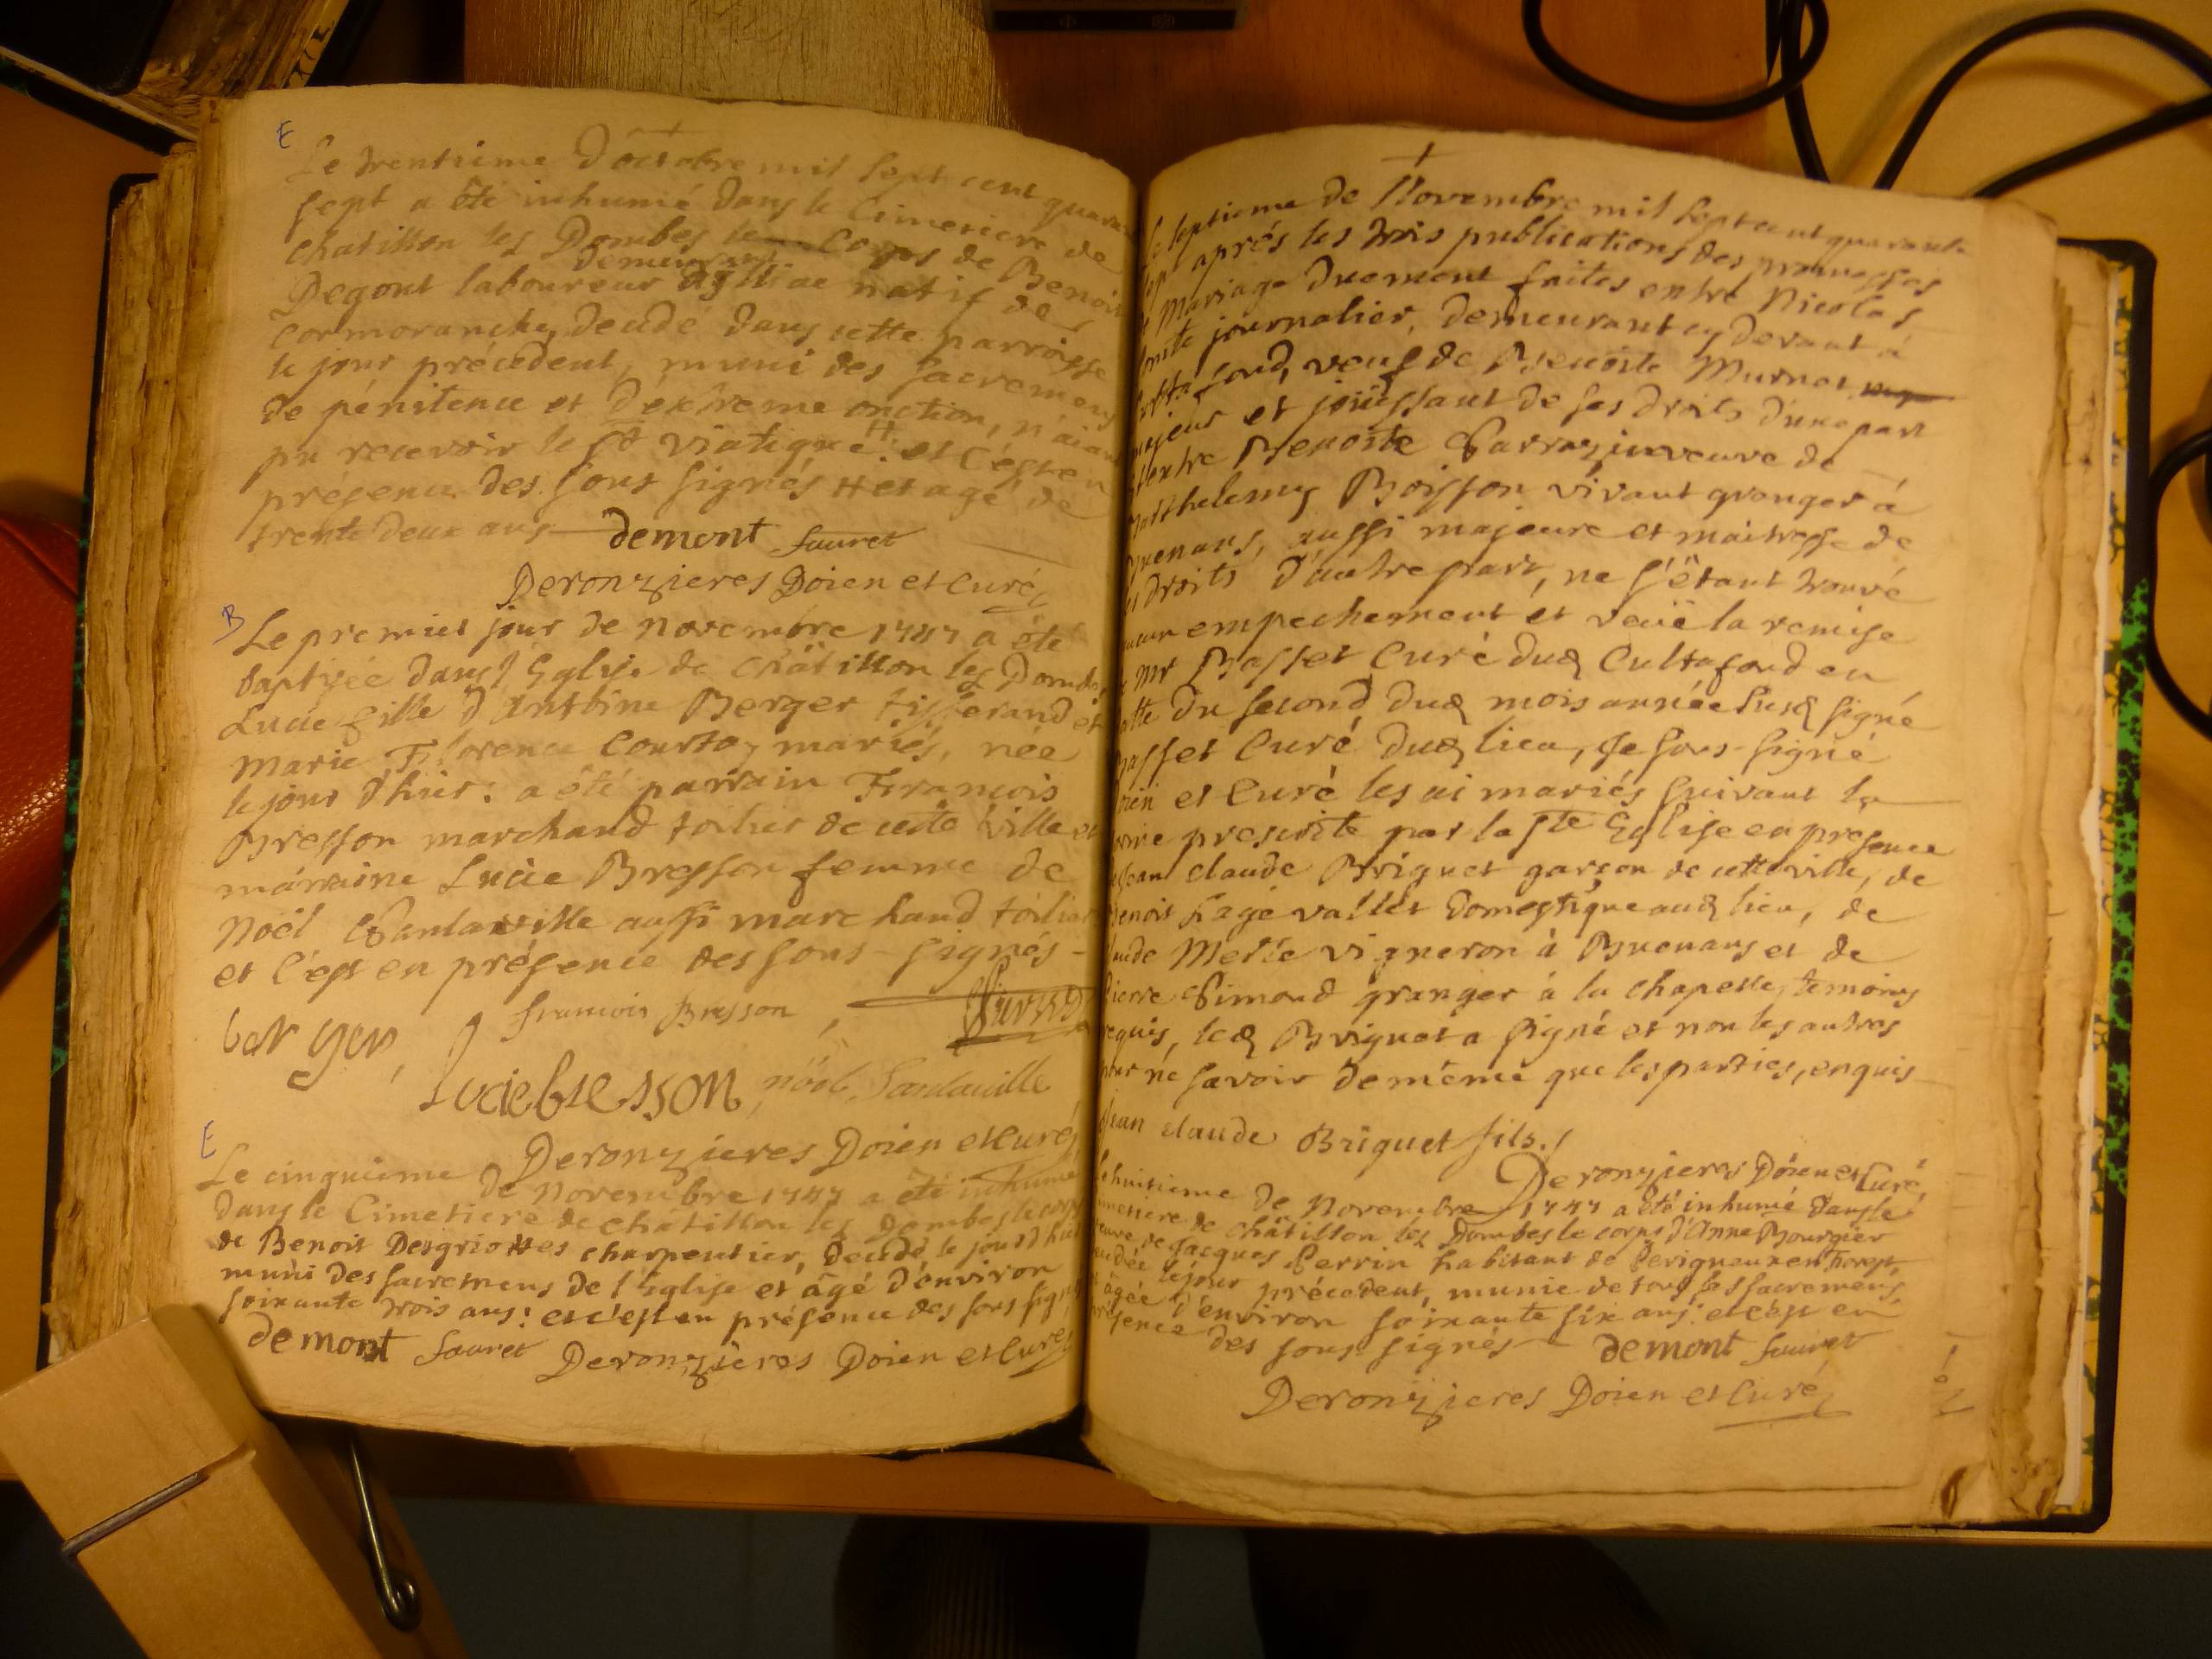 E
Le trentieme d'octobre mil sept cent quaran
sept a été inhumé dans le Cimetiere de
chatillon les Dombes le corps de Benoit
demeurant
Degout laboureur natif de
Cormoranche, decedé dans cette parroisse
le jour précedent, muni des sacremens
de pénitence et d'éxtreme onction, n'aiant
pu recevoir le St viatique. ++ et c'est en
présence des sous signés ++ et agé de
trente deux ans demont Sauret
Deronzieres Doien et Curé
B
Le premier jour de novembre 1747 a été
baptisée dans l'Eglise de Châtillon les Dombes
Lucie fille d'Antoine Berger tisserand et
Marie Florence Courtoy mariés, née
le jour d'hier : a été parrain François
Bresson marchand toilier de cette ville et
marraine Lucie Bresson femme de
Noël Sandaville aussi marchand toilier
et c'est en présence des sous-signés -
francois Bresson
berger
Lucie bresson noël Sandaville
Deronzieres Doien et Curé
E
Le cinquieme de Novembre 1747 a été inhumé
dans le Cimetiere de châtillon les Dombes le corps
de Benoit Desgriottes charpentier, decedé le jour d'hier
muni des sacremens de l'Eglise et âgé d'environ
soixante trois ans : et c'est en présence des sous signés
demont Sauret Deronzieres Doien et Curé
Le septieme de Novembre mil sept cent quarante
sept après les trois publications des promesses
de Mariage duement faites entre Nicolas
journalier, demeurant cy devant à
Curtafond, veuf de Benoite Murner
majeur et joüissant de ses droits d'une part
et entre Benoite Sarrazin veuve de
Barthelemy Boisson vivant granger à
Buenans, aussi majeure et maitresse de
ses droits d'autre part, ne s'étant trouvé
aucun empechement et veüe la remise
de Mr Basset Curé dud Curtafond en
datte du second dud mois année susd signé
Basset Curé dud lieu, Je sous-signé
Doien et Curé les ai mariés suivant la
forme prescrite par la Ste Eglise en presence
de Jean claude Briguet garçon de cette ville, de
Benoit Fagé vallet domestique aud lieu, de
Claude Merle vigneron à Buenans et de
Pierre Simond granger à la chapelle, temoins
requis, led Briguet a signé et non les autres
pour ne savoir de même que les parties, enquis
Jean claude Briguet fils.
Deronzieres Doien et Curé
Le huitieme de Novembre 1747 a été inhumé dans le
Cimetiere de châtillon les Dombes le corps d'Anne Bourgier
veuve de Jacques Perrin habitant de Perigneux en Forest,
decedée le jour précedent, munie de tous les sacremens,
et âgée d'environ soixante six ans : et c'est en
présence des sous signés demont Sauret
Deronzieres Doien et Curé